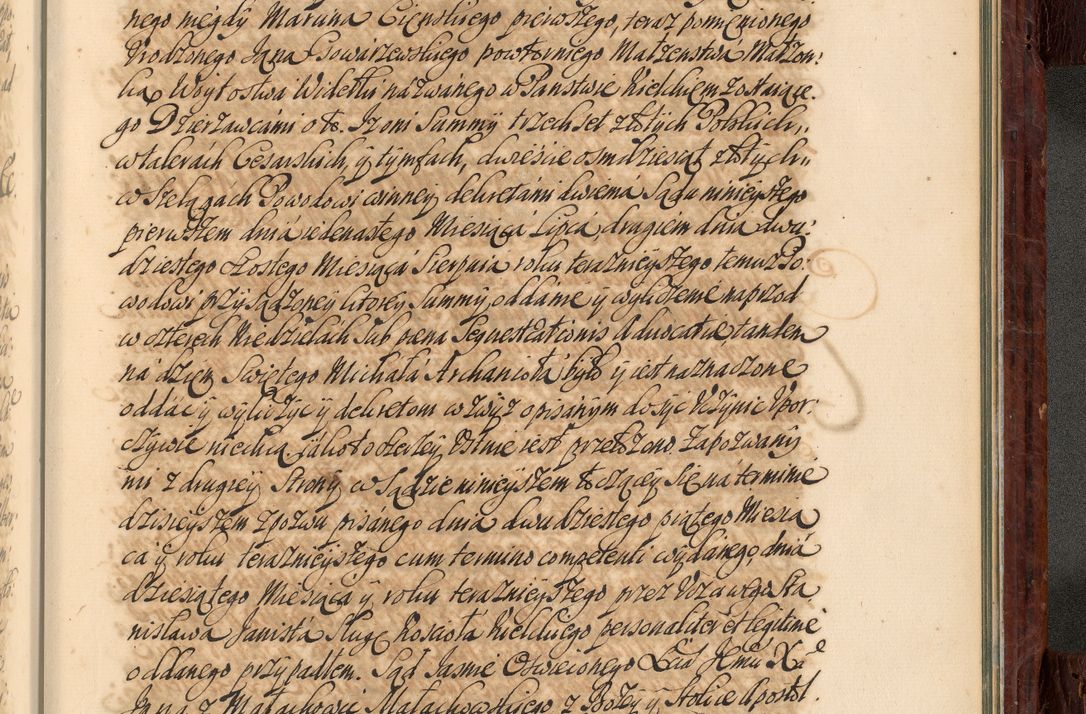 nego między Marcina Cięnskiego pierwszego, teraz pomięnionego
Urodzonego Jana Gowarzewskiego powtornego Małzenstwa Małzon¬
ką Woytostwa Widełki názwánego w Panstwie Kieleckiem zostaiące¬
go Dzierzawcámi o to. Iz oni Summy trzechset złotych Polskich,
w talerách Cesarskich, ÿ tymfach, dwieście osmdziesiąt złotych
w Szelągách Powodowi winney dekretámi dwiemá Sądu ninieyszego
pierwszem dniá iedenastego Miesiącá Lipcá, drugiem dniá dwu¬
dziestego szostego Miesiącá Sierpnia roku teraznieyszego temuz Po¬
wodowi przysądzoney ktorey Summy oddanie ÿ wyliczenie naprzod
w czterech Niedzielach sub pæna Sequestrationis Advocatiæ tandem
ná dzien Swiętego Micháłá Archaniołá było ÿ iest náznaczone
oddáć ÿ wyliczyć ÿ dekretom wzwyz opisánym dosyć uczynić Upor¬
czywie niechcą, jáko to obszerley ustnie iest przełozono. Zapozwány
mi z drugiey Strony w Sądzie ninieyszem toczącey się ná terminie
dzisieyszem z pozwu pisánego dnia dwudziestego piątego Miesią
cá ÿ roku teraznieyszego cum termino competenti wydánego, dniá
dziesiątego Miesiącá ÿ roku teraznieyszego przez Uczciwego Sta
nisława Janistá Sługę Koscioła Kieleckiego personaliter et legitime
oddanego przypadłem. Sąd Jasnie Oswieconego
Jana z Małachowic Małachowskiego z Bozey ÿ Stolice Apostol.